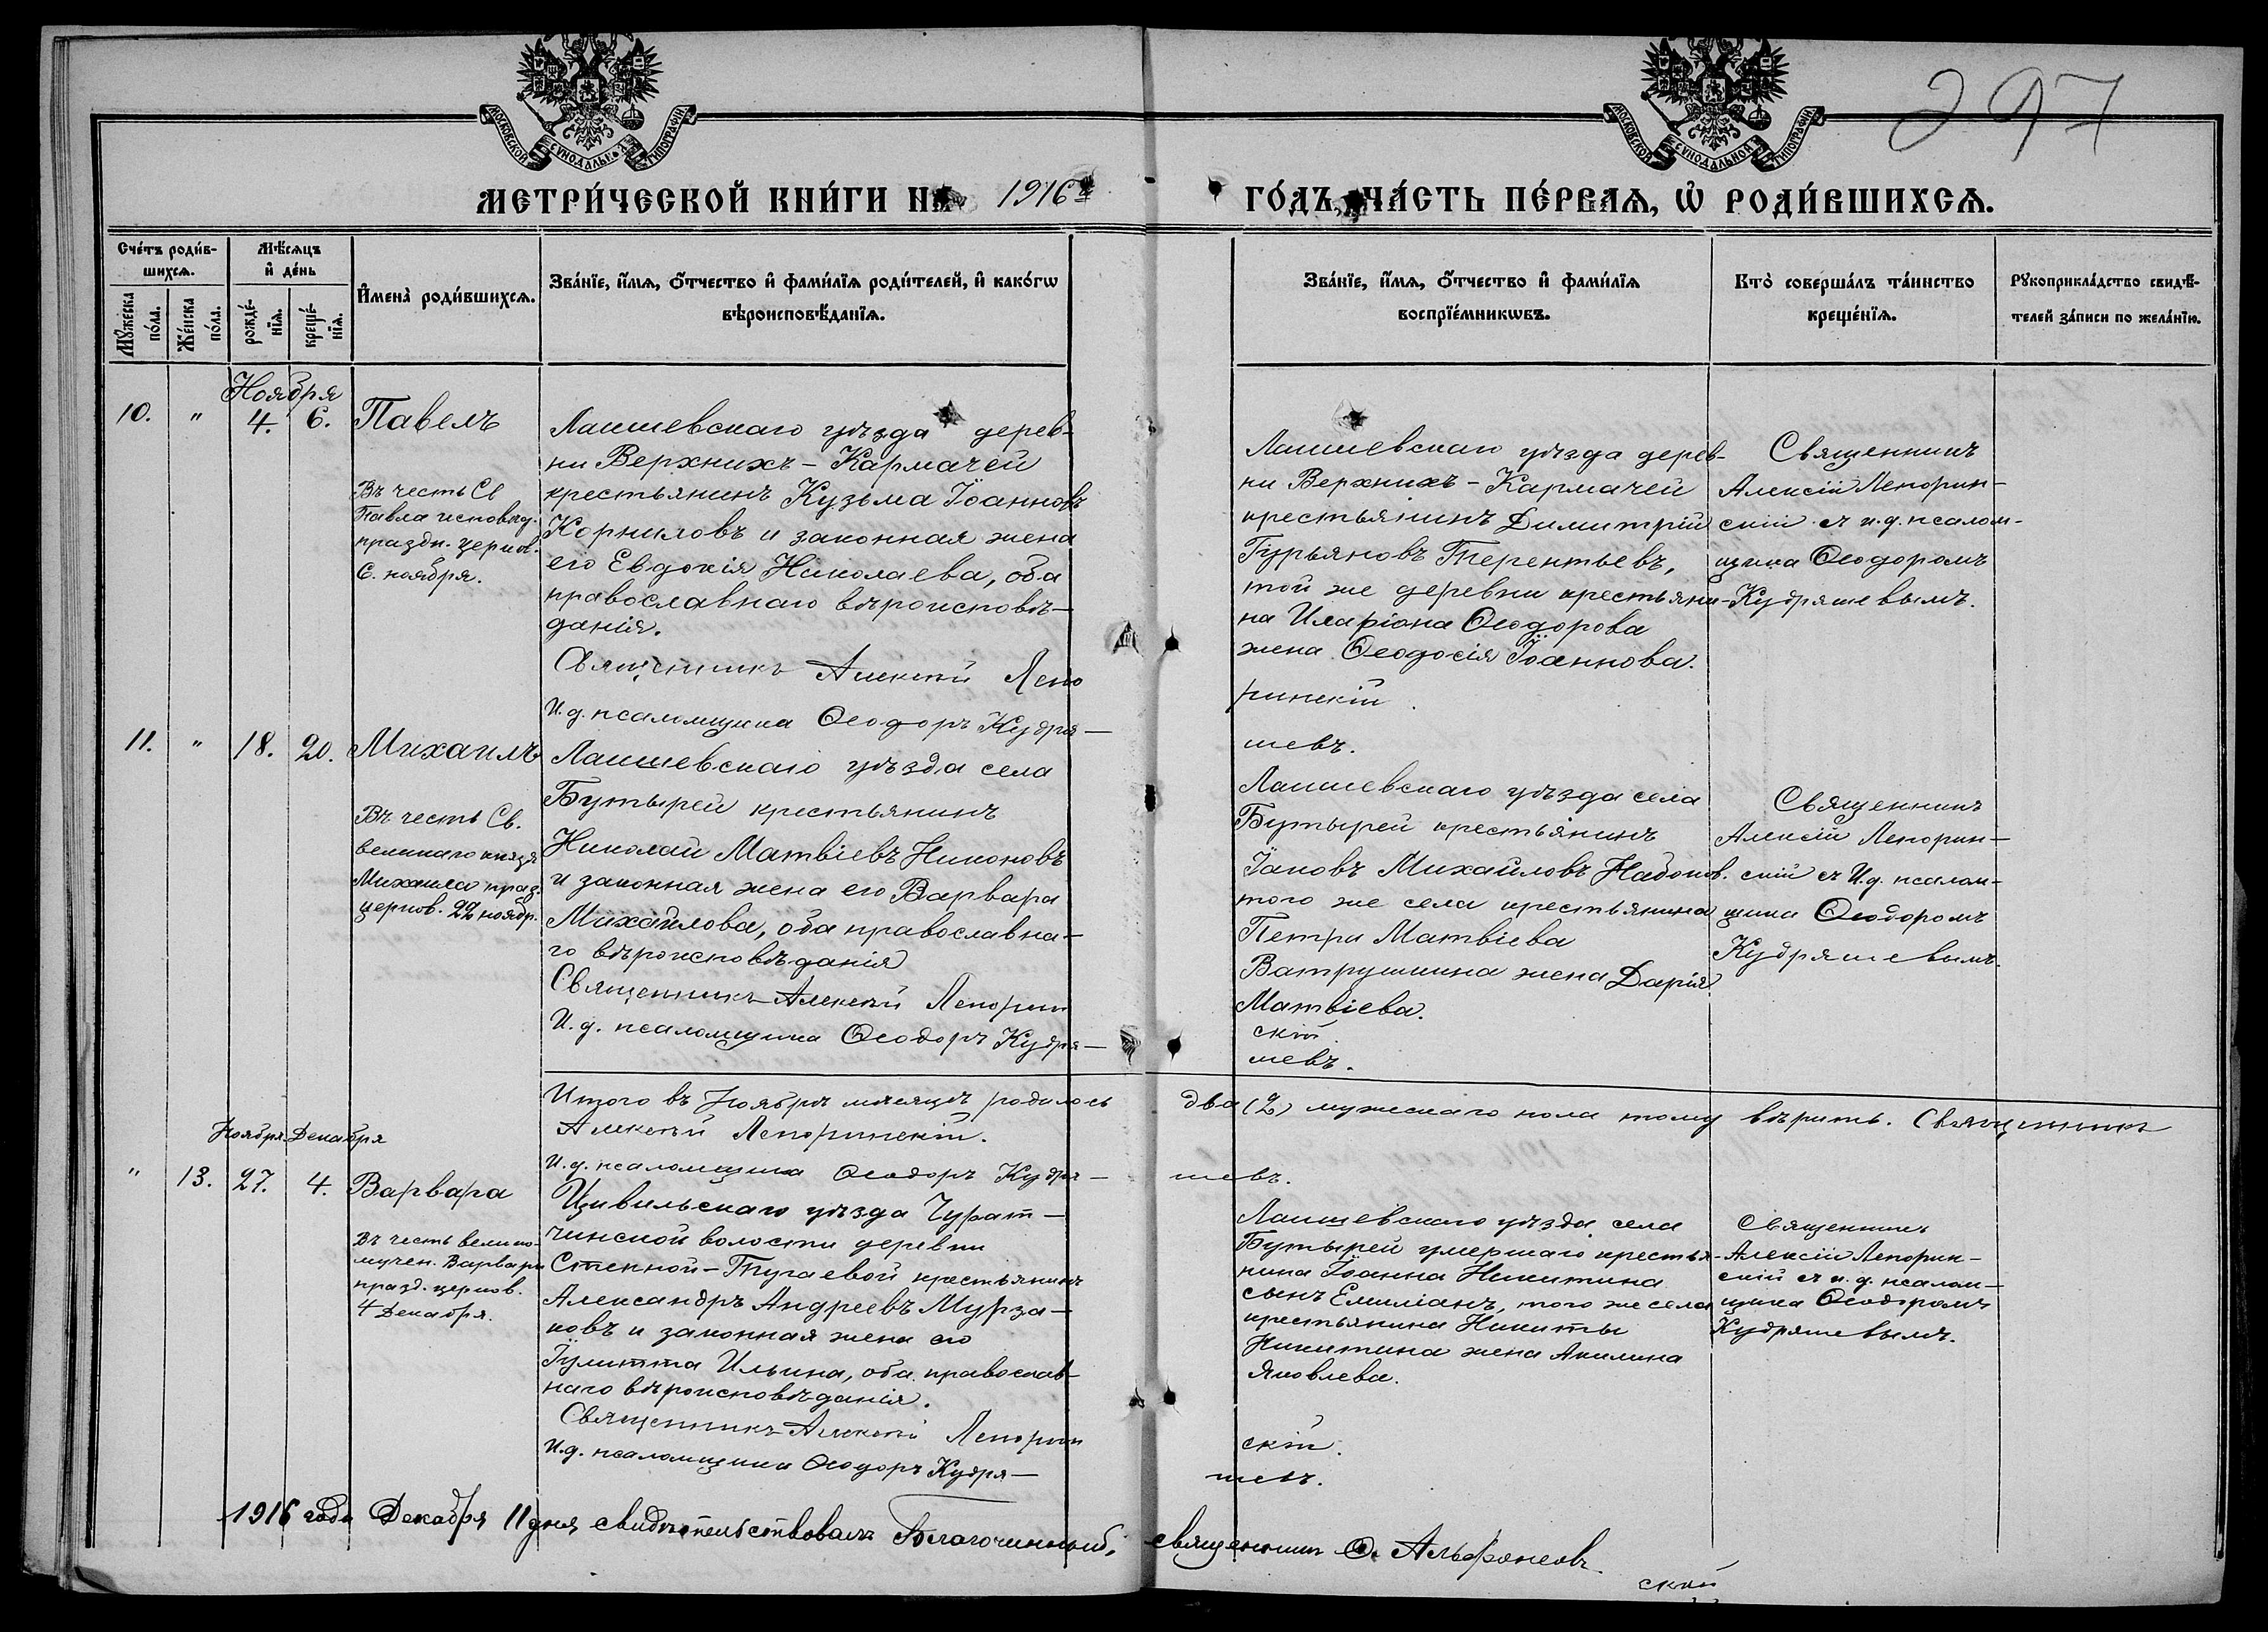 297
МОСКОВСКОЙ СѴНОДАЛЬНОЙ ТИПОГРАФІИ
МОСКОВСКОЙ СѴНОДАЛЬНОЙ ТИПОГРАФІИ
МЕТРИ́ЧЕСКОЙ КНИ́ГИ НА 1916й
ГО́ДЪ, ЧА́СТЬ ПЕ́РВАѦ, Ѡ҆ РОДИ́ВШИХСѦ.
Сче́тъ роди́в-
шихсѧ.
Мꙋ́жеска по́ла.
Же́нска по́ла.
Мѣ́сѧцъ
и҆ де́нь
рожде́-
нїѧ.
креще́-
нїѧ.
И҆мена̀ роди́вшихсѧ.
Зва́нїе, и҆́мѧ, ѻ҆́тчество и҆ фами́лїѧ роди́телей, и҆ како́гѡ
вѣроисповѣ́данїѧ.
Зва́нїе, и҆́мѧ, ѻ҆́тчество и҆ фами́лїѧ
воспрїе́мникѡвъ.
Кто̀ соверша́лъ та́инство
креще́нїѧ.
Рꙋкоприкла́дство свидѣ́-
телей за́писи по жела́нїю.
Ноября
10. " 4. 6. Павелъ
Въ честь Св
Павла исповѣд.
праздн. церков.
6. ноября.
Лаишевскаго уѣзда дерев-
ни Верхнихъ-Кармачей
крестьянинъ Кузьма Іоанновъ
Корниловъ и законная жена
его Евдокія Николаева, оба
православнаго вѣроисповѣ-
данія.
Священникъ Алексій Лепо
И.д. псаломщика Ѳеодоръ Кудря-
Лаишевскаго уѣзда дерев-
ни Верхнихъ-Кармачей
крестьянинъ Димитрій
Гурьяновъ Терентьевъ,
той же деревни крестьяни-
на Иларіона Ѳеодорова
жена Ѳеодосія Іоаннова.
ринскій.
шевъ.
Священникъ
Алексій Лепорин-
скій съ и.д. псалом-
щика Ѳеодоромъ
Кудряшевымъ.
11. " 18. 20. Михаилъ
Въ честь Св.
великаго князя
Михаила праз.
церков. 22 ноябр.
Лаишевскаго уѣзда села
Бутырей крестьянинъ
Николай Матвіевъ Никоновъ
и законная жена его Варвара
Михайлова, оба православна-
го вѣроисповѣданія
Священникъ Алексій Лепорин
И.д. псаломщика Ѳеодоръ Кудря-
Лаишевскаго уѣзда села
Бутырей крестьянинъ
Іаковъ Михайловъ Набоков.
того же села крестьянина
Петра Матвіева
Ватрушкина жена Дарія
Матвіева.
скій.
шевъ.
Священникъ
Алексій Лепорин-
скій съ И.д. псалом-
щика Ѳеодоромъ
Кудряшевымъ.
Итого въ Ноябрѣ мѣсяцѣ родилось два (2) мужескаго пола тому вѣрить. Священникъ
Алексій Лепоринскій.
И.д. псаломщика Ѳеодоръ Кудря-шевъ.
Ноября. Декабря
" 13. 27. 4. Варвара
Въ честь велико-
мучен. Варвары
празд. церков.
4 Декабря.
Цивильскаго уѣзда Чурат-
чинской волости деревни
Степной-Тугаевой крестьянинъ
Александръ Андреевъ Мурза-
ковъ и законная жена его
Іулитта Ильина, оба православ-
наго вѣроисповѣданія.
Священникъ Алексій Лепорин
И.д. псаломщика Ѳеодоръ Кудря-
Лаишевскаго уѣзда села
Бутырей умершаго крестья-
нина Іоанна Никитина
сынъ Емиліанъ, того же села
крестьянина Никиты
Никитина жена Акилина
Яковлева.
скій.
шевъ.
Священникъ
Алексій Лепорин-
скій съ и.д. псалом-
щика Ѳеодоромъ
Кудряшевымъ.
1916 года Декабря 11 дня свидѣтельствовалъ Благочинный, священникъ Ѳ. Альфонсов
ский